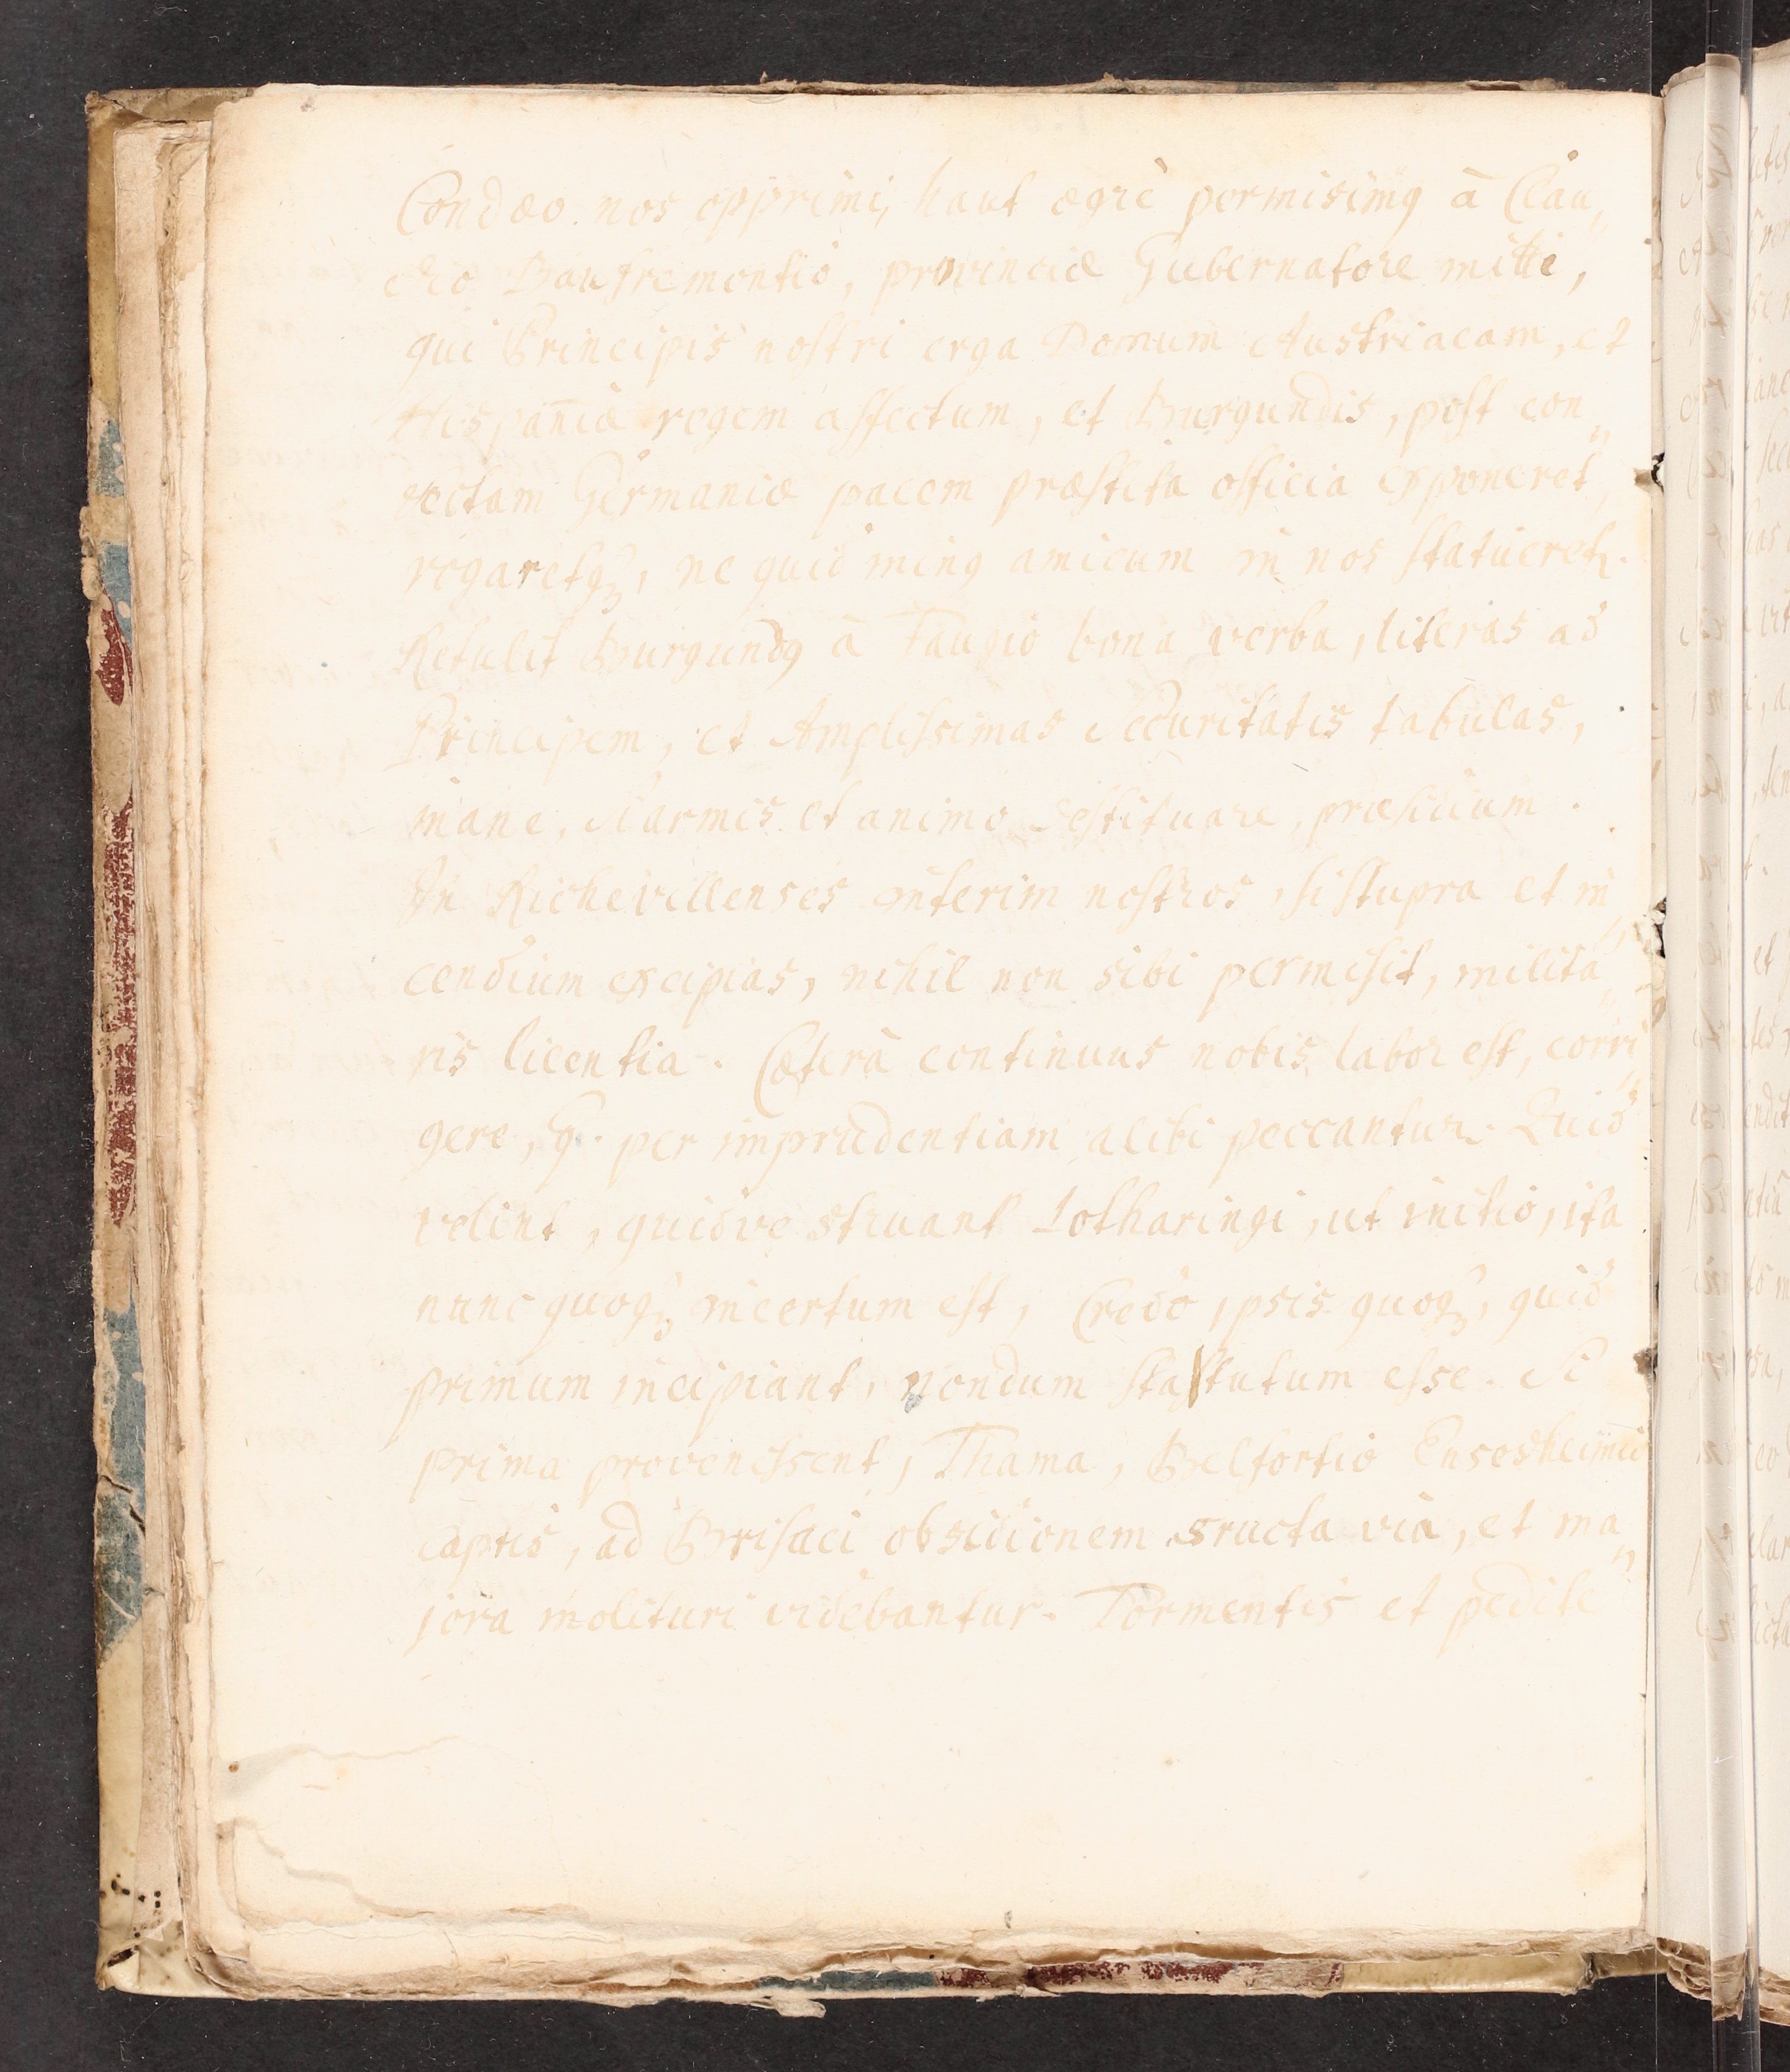 Condæo nos opprimi, haut ægrè permisimq à Clau„
dio Baufremontio, provinciæ Gubernatore mitti,
qui Principis nostri erga Domum Austriacam, et
Hispaniæ regem affectum, et Burgundis, post con„
rectam Germaniæ pacem præstita officia exponeret,
rogaretqꝫ, ne quid minq amicum in nos statueret.
Retulit Burgundq à Faugio bona verba, literas ad
Principem, et Amplissimas securitatis tabulas,
inane, si armis et animo destituare, præsidium.
In Richevillenses interim nostros, si stupra et in„
cendium excipias, nihil non sibi permisit, milita„
ris licentia. Cæterà continuus nobis labor est, corri„
gere, q. per imprudentiam alibi peccantur. Quid
velint, quidve struant Lotharingi, ut initio, ita
nunc quoqꝫ incertum est, Credo ipsis quoqꝫ, quid
primum incipiant, nondum statutum esse. Si
prima provenissent, Thama, Belfortio Ensesheimio
captis, ad Brisaci obsidionem structa via, et ma„
jora molituri videbantur. Tormentis et pedite